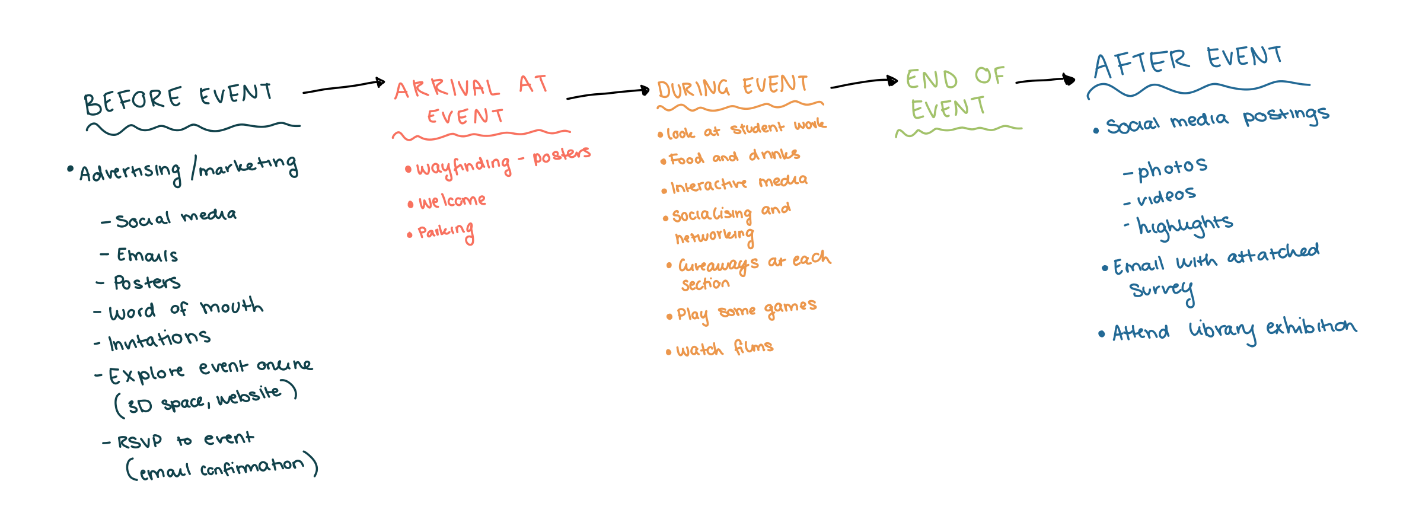 BEFORE EVENT
• Advertising/marketing
- Social media
- Emails
- Posters
- Word of mouth
- Invitations
- Explore event online
(3D space, website)
- RSVP to event
(email confirmation)
ARRIVAL AT
EVENT
• Wayfinding - posters
• Welcome
• Parking
DURING EVENT
• Look at student work
• Food and drinks
• Interactive media
• Socialising and
networking
• Giveaways at each
section
• Play some games
• Watch films
END OF
EVENT
AFTER EVENT
• Social media postings
- photos
- videos
- highlights
• Email with attatched
survey
• Attend library exhibition